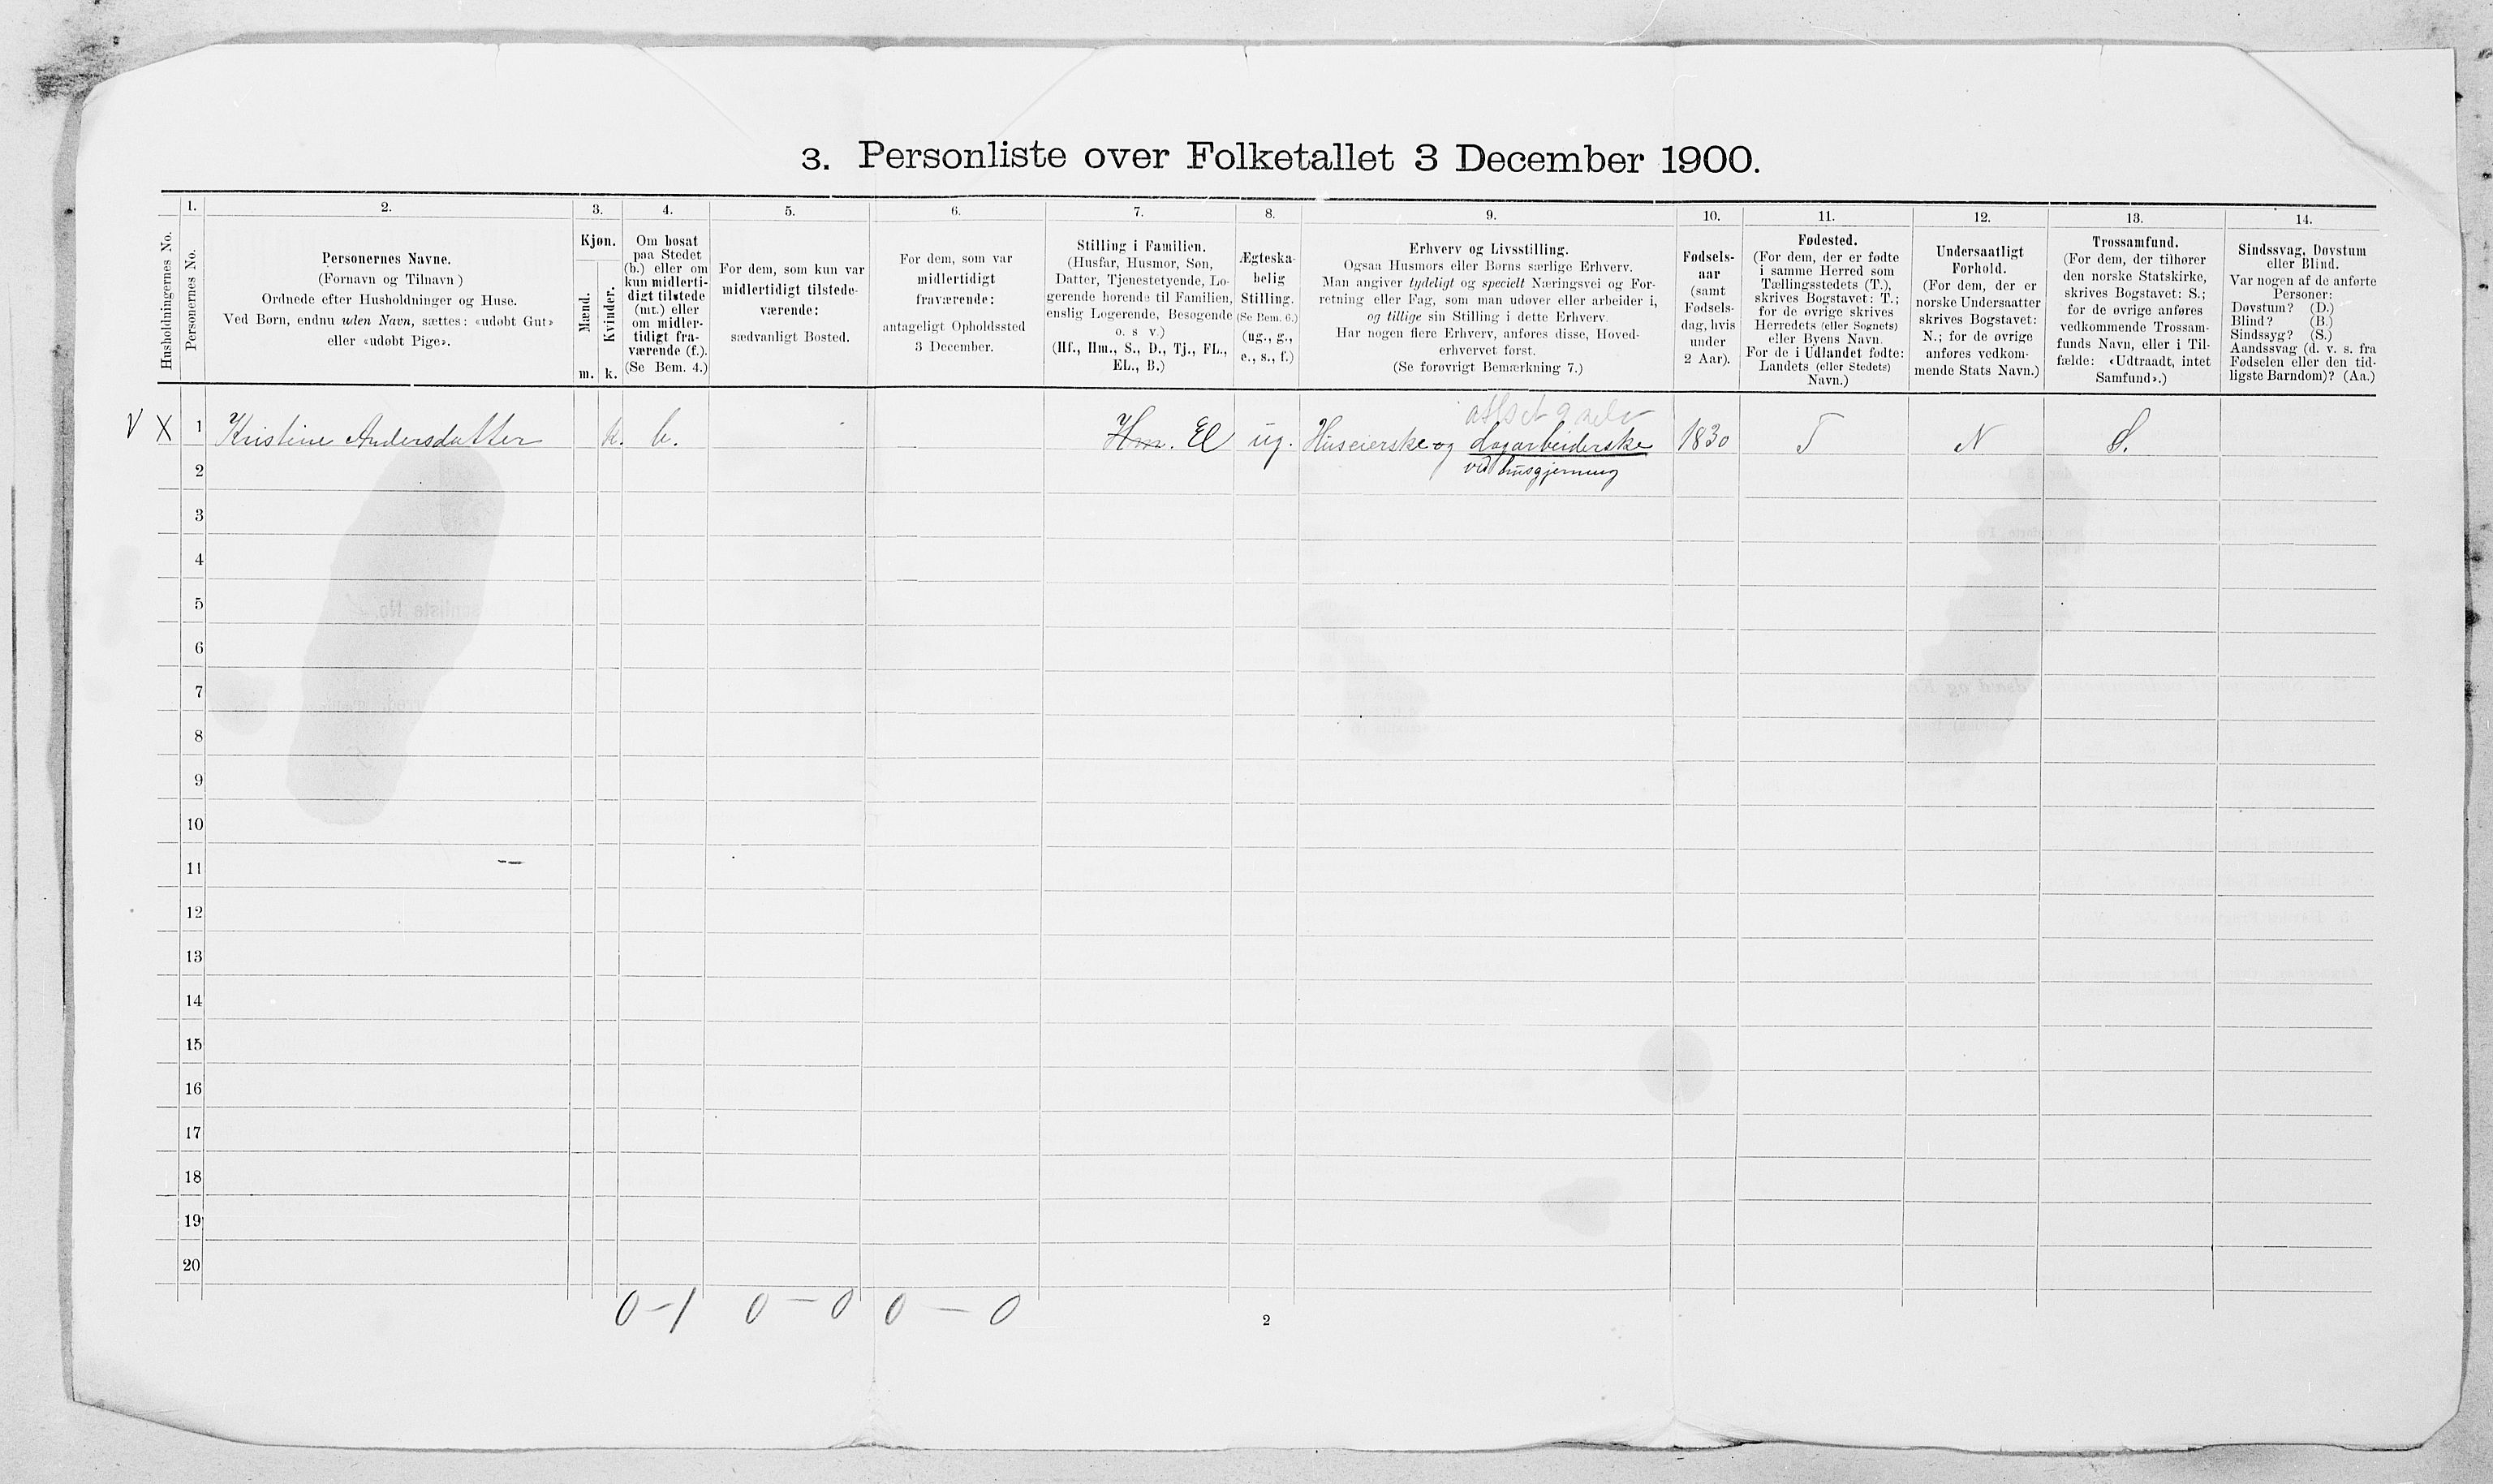 3. Personliste over Folketallet 3 December 1900.
1. 2. 3. 4. 5. 6. 7. 8. 9. 10. 11. 12. 13. 14.
Husholdningernes No.
Personernes No.
Personernes Navne.
(Fornavn og Tilnavn)
Ordnede efter Husholdninger og Huse.
Ved Børn, endnu uden Navn, sættes: «udøbt Gut»
eller «udøbt Pige».
Kjøn.
Mænd.
Kvinder.
m. k.
Om bosat
paa Stedet
(b.) eller om
kun midlerti-
digt tilstede
(mt.) eller
om midler-
tidigt fra-
værende (f.).
(Se Bem. 4.)
For dem, som kun var
midlertidigt tilstede-
værende:
sædvanligt Bosted.
For dem, som var
midlertidigt
fraværende:
antageligt Opholdssted
3 December.
Stilling i Familien.
(Husfar, Husmor, Søn,
Datter, Tjenestetyende, Lo-
gerende hørende til Familien,
enslig Logerende, Besøgende
o. s v.)
(Hf., Hm., S., D., Tj., FL.,
EL., B.)
Ægteska-
belig
Stilling.
(Se Bem. 6.)
(ug., g.,
e., s., f.)
Erhverv og Livsstilling.
Ogsaa Husmors eller Børns særlige Erhverv.
Man angiver tydeligt og specielt Næringsvei og For-
retning eller Fag, som man udøver eller arbeider i,
og tillige sin Stilling i dette Erhverv.
Har nogen flere Erhverv, anføres disse, Hoved-
erhvervet først.
(Se forøvrigt Bemærkning 7.)
Fødsels-
aar
(samt
Fødsels-
dag, hvis
under
2 Aar).
Fødested.
(For dem, der er fødte
i samme Herred som
Tællingsstedets (T.),
skrives Bogstavet: T.;
for de øvrige skrives
Herredets (eller Sognets)
eller Byens Navn.
For de i Udlandet fødte:
Landets (eller Stedets)
Navn.)
Undersaatligt
Forhold.
(For dem, der er
norske Undersaatter
skrives Bogstavet:
N.; for de øvrige
anføres vedkom-
mende Stats Navn.)
Trossamfund.
(For dem, der tilhører
den norske Statskirke,
skrives Bogstavet: S.;
for de øvrige anføres
vedkommende Trossam-
funds Navn, eller i Til-
fælde: «Udtraadt, intet
Samfund».)
Sindssvag, Døvstum
eller Blind.
Var nogen af de anførte
Personer:
Døvstum? (D.)
Blind? (B.)
Sindssyg? (S.)
Aandssvag (d. v. s. fra
Fødselen eller den tid-
ligste Barndom)? (Aa.)
V X 1 Kristine Andersdatter k. b. Hm. El ug. Huseierske og dagarbeiderske 1830 T N S.
ved husgjerning
2
3
4
5
6
7
8
9
10
11
12
13
14
15
16
17
18
19
20
0-1 0-0 0-0
2